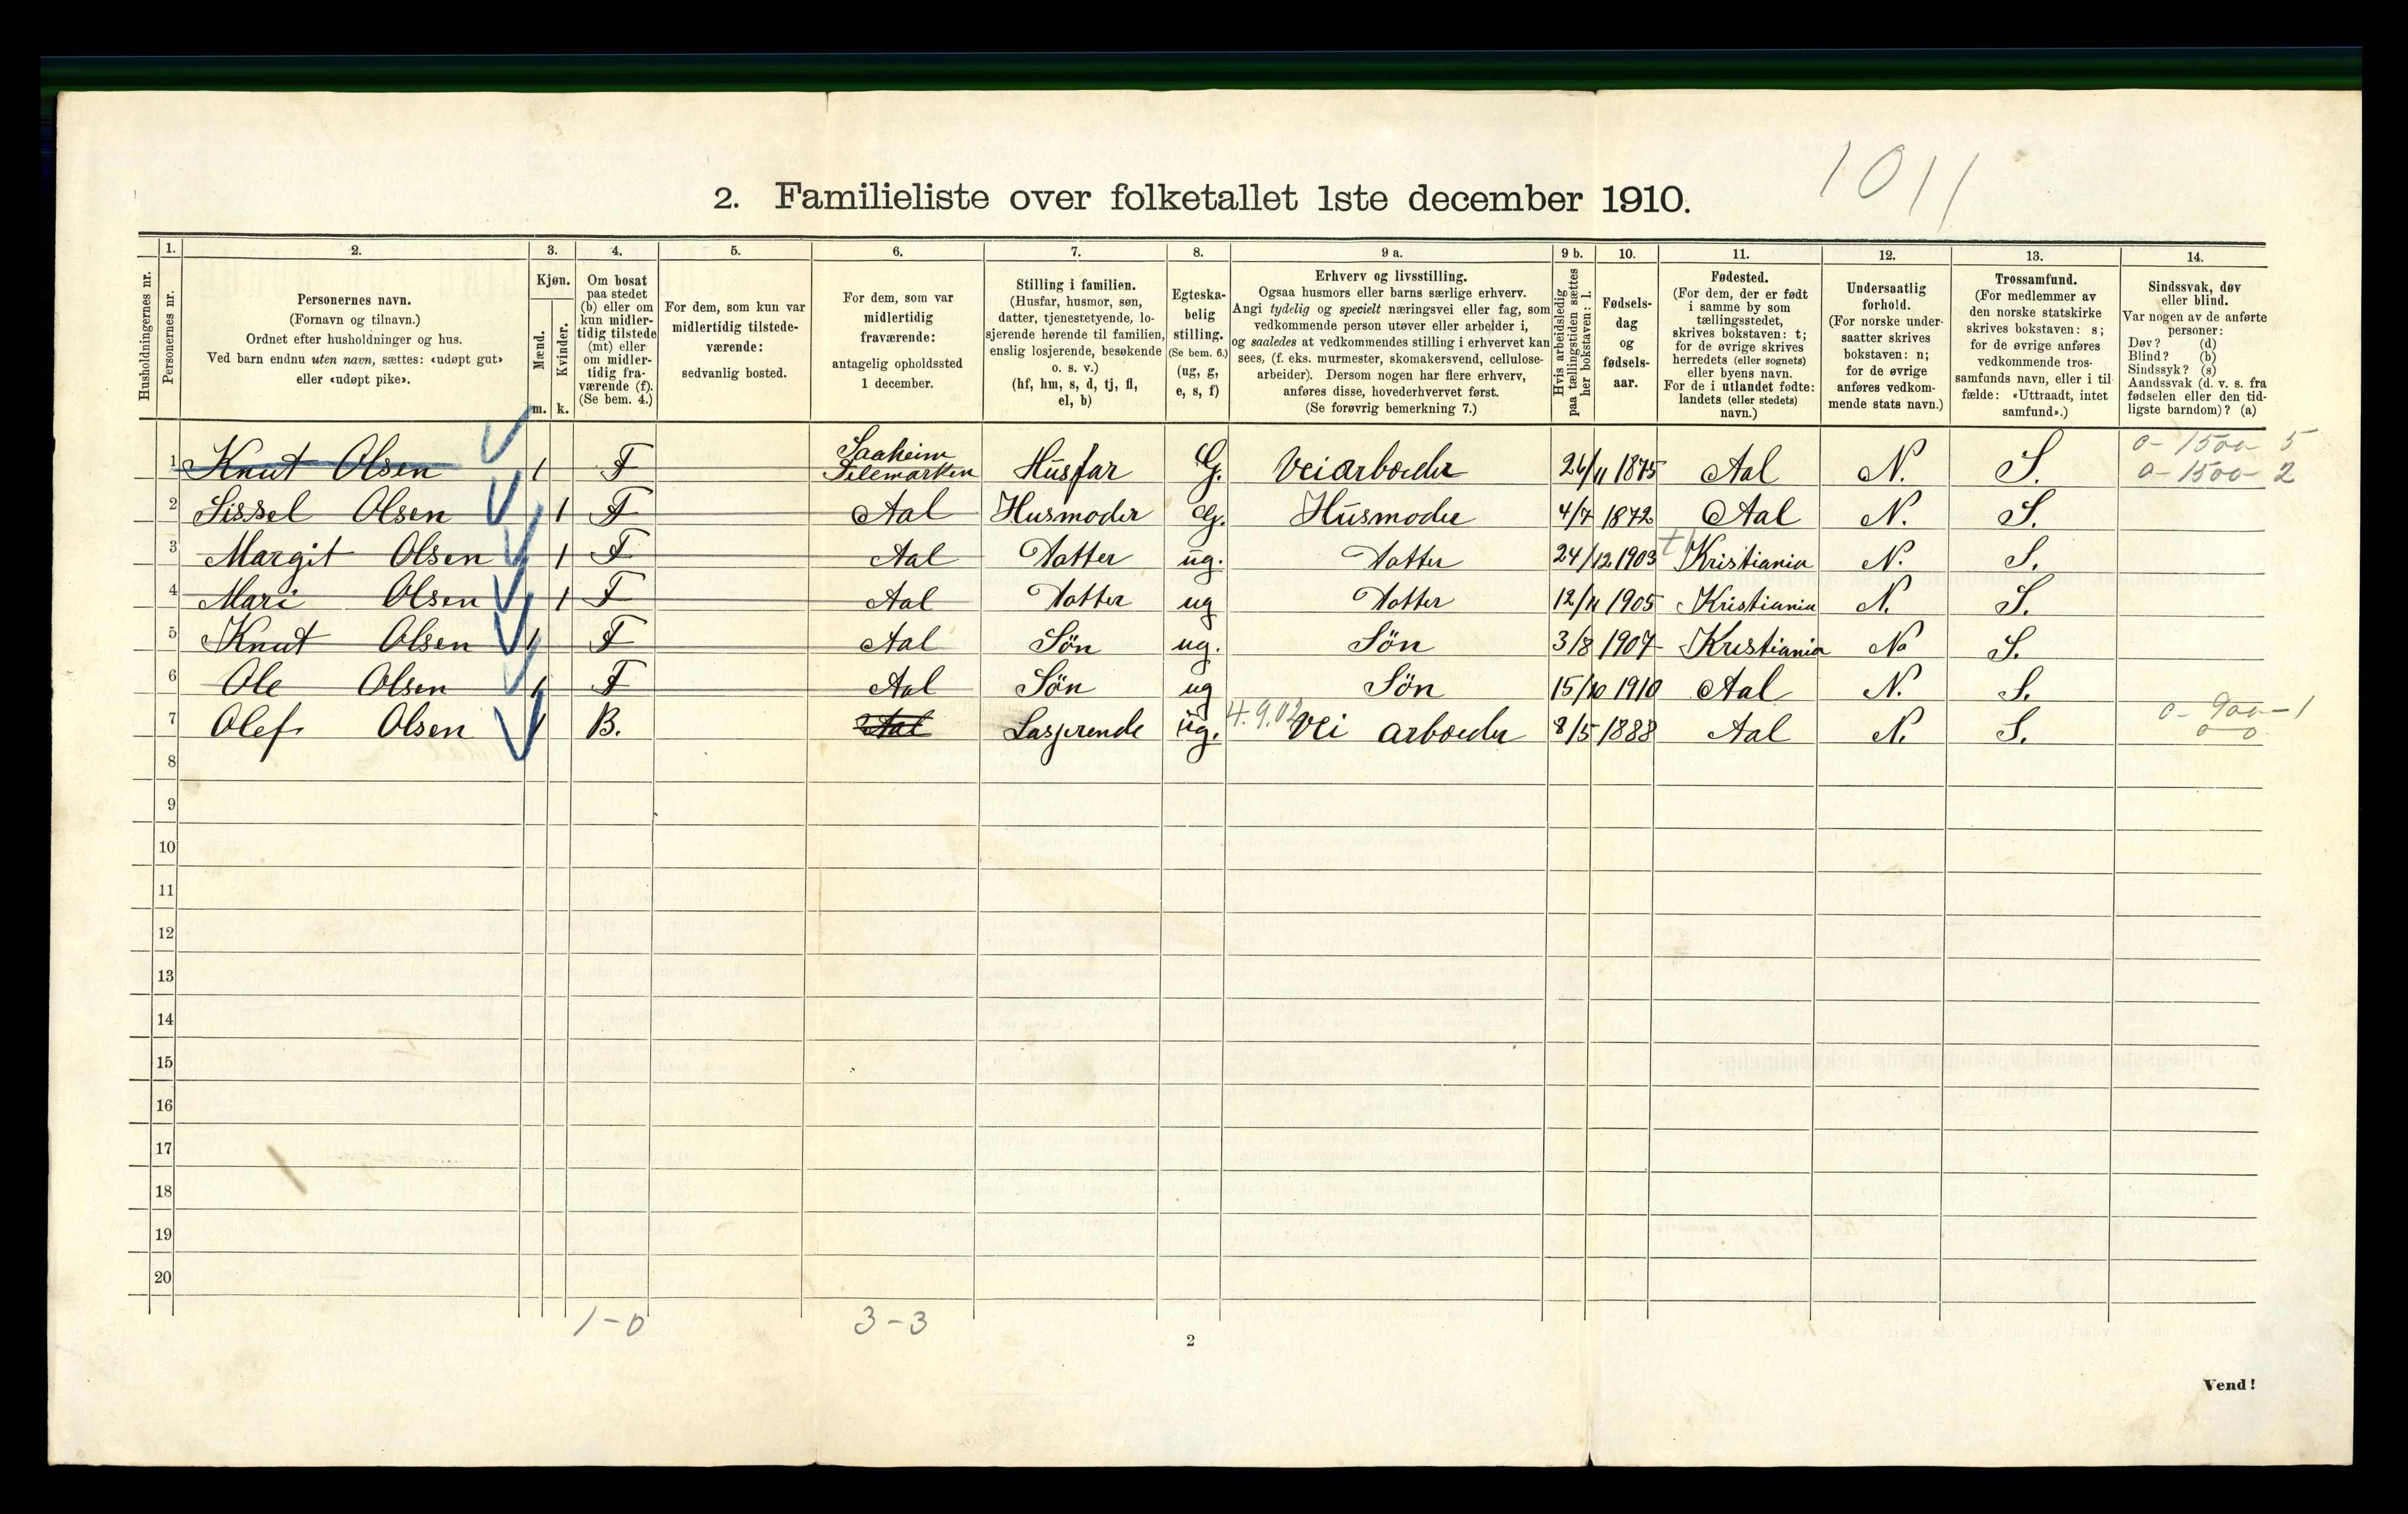 1011
2. Familieliste over folketallet 1ste december 1910.
Husholdningernes nr.
1.
Personernes nr.
2.
Personernes navn.
(Fornavn og tilnavn.)
Ordnet efter husholdninger og hus.
Ved barn endnu uten navn, sættes: «udøpt gut»
eller «udøpt pike».
3.
Kjøn.
Mænd.
Kvinder.
m. k.
4.
Om bosat
paa stedet
(b) eller om
kun midler-
tidig tilstede
(mt) eller
om midler-
tidig fra-
værende (f).
(Se bem. 4.)
5.
For dem, som kun var
midlertidig tilstede-
værende:
sedvanlig bosted.
6.
For dem, som var
midlertidig
fraværende:
antagelig opholdssted
1 december.
7.
Stilling i familien.
(Husfar, husmor, søn,
datter, tjenestetyende, lo-
sjerende hørende til familien,
enslig losjerende, besøkende
o. s. v.)
(hf, hm, s, d, tj, fl,
el, b)
8.
Egteska-
belig
stilling.
(Se bem. 6.)
(ug, g,
e, s, f)
9 a.
Erhverv og livsstilling.
Ogsaa husmors eller barns særlige erhverv.
Angi tydelig og specielt næringsvei eller fag, som
vedkommende person utøver eller arbeider i,
og saaledes at vedkommendes stilling i erhvervet kan
sees, (f. eks. murmester, skomakersvend, cellulose-
arbeider). Dersom nogen har flere erhverv,
anføres disse, hovederhvervet først.
(Se forøvrig bemerkning 7.)
9 b.
Hvis arbeidsledig
paa tællingstiden sættes
her bokstaven: l.
10.
Fødsels-
dag
og
fødsels-
aar.
11.
Fødested.
(For dem, der er født
i samme by som
tællingsstedet,
skrives bokstaven: t;
for de øvrige skrives
herredets (eller sognets)
eller byens navn.
For de i utlandet fødte:
landets (eller stedets)
navn.)
12.
Undersaatlig
forhold.
(For norske under-
saatter skrives
bokstaven: n;
for de øvrige
anføres vedkom-
mende stats navn.)
13.
Trossamfund.
(For medlemmer av
den norske statskirke
skrives bokstaven: s;
for de øvrige anføres
vedkommende tros-
samfunds navn, eller i til-
fælde: «Uttraadt, intet
samfund».)
14.
Sindssvak, døv
eller blind.
Var nogen av de anførte
personer:
Døv? (d)
Blind? (b)
Sindssyk? (s)
Aandssvak (d. v. s. fra
fødselen eller den tid-
ligste barndom)? (a)
1 Knut Olsen 1 F Saaheim Telemarken Husfar G. Veiarbeider 26/11 1875 Aal N. S. 0-1500-5 0-1500-2
2 Sissel Olsen 1 F Aal Husmoder G. Husmoder 4/7 1872 Aal N. S.
3 Margit Olsen 1 F Aal Datter ug. Datter 24/12 1903 t Kristiania N. S.
4 Mari Olsen 1 F Aal Datter ug Datter 12/11 1905 Kristiania N. S.
5 Knut Olsen 1 F Aal Søn ug. Søn 3/8 1907 Kristiania N S.
6 Ole Olsen 1 F Aal Søn ug Søn 15/10 1910 Aal N. S.
7 Olef Olsen 1 B. Aal Losjerende ug. 4.9.02 Vei arbeider 8/5 1888 Aal N. S. 0-900-1 0 0
8
9
10
11
12
13
14
15
16
17
18
19
20
1-0 3-3
2
Vend!